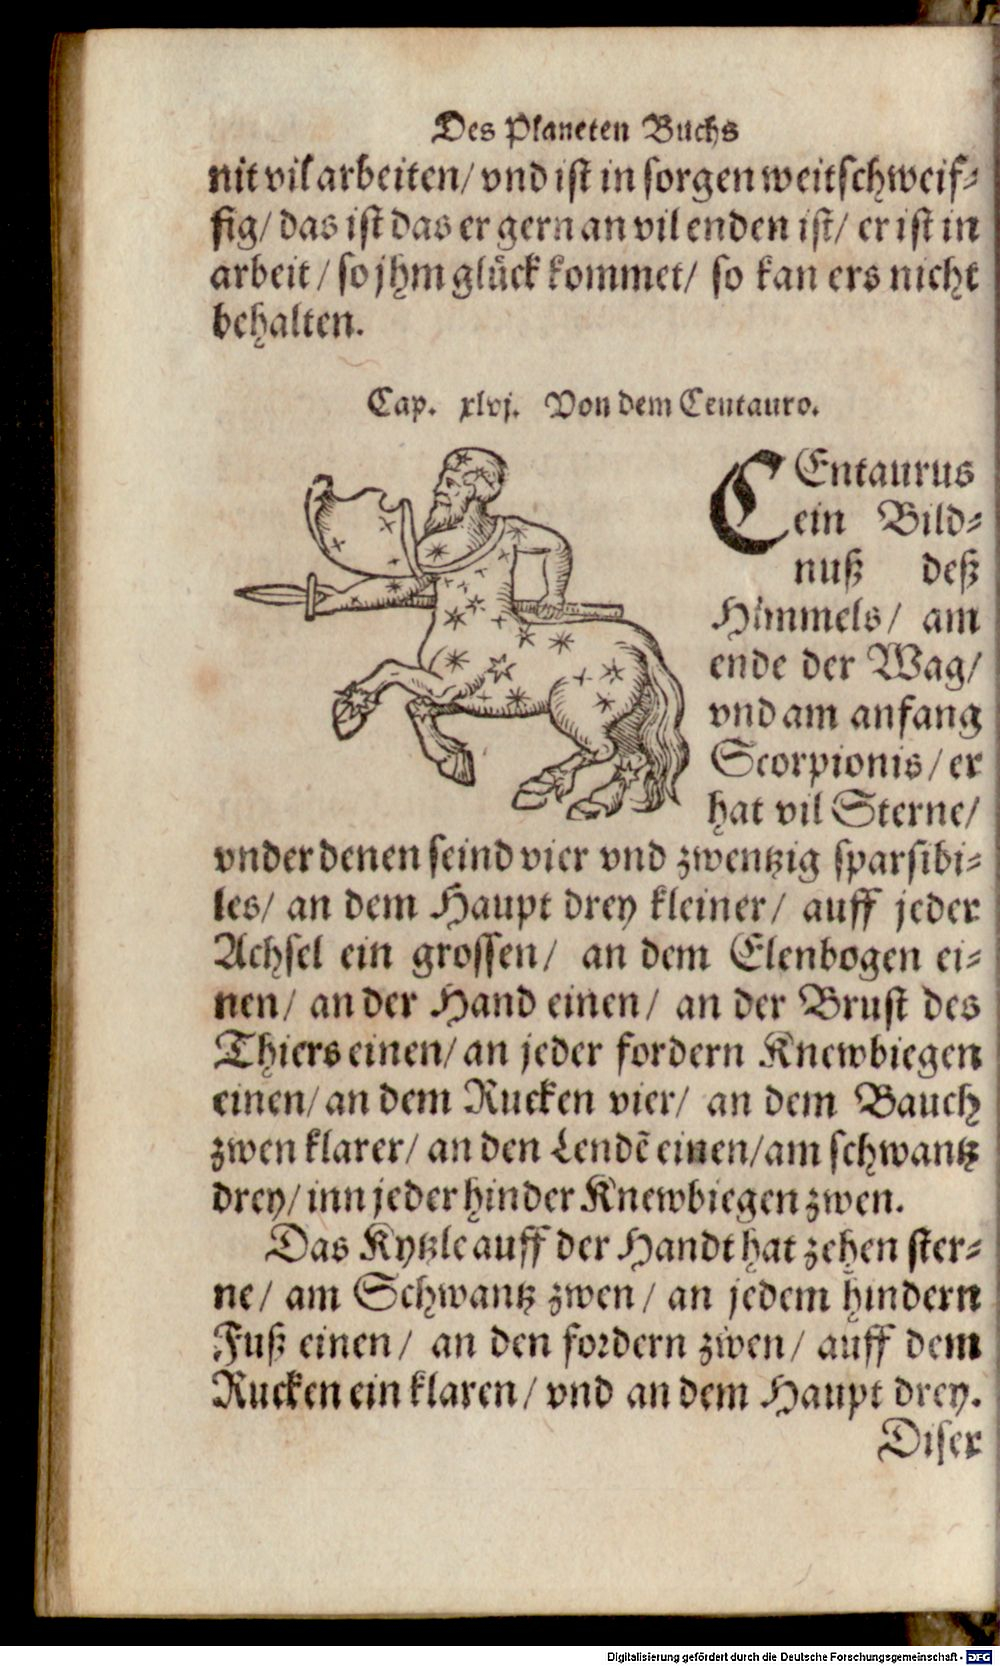 Des Planeten Buchs
nit vil arbeiten/ vnd ist in sorgen weitschweif⸗
fig/ das ist das er gern an vil enden ist/ er ist in
arbeit/ so jhm glück kommet/ so kan ers nicht
behalten.
Cap. xlvj. Von dem Centauro.
CEntaurus
ein Bild⸗
nuß deß
Himmels/ am
ende der Wag/
vnd am anfang
Scorpionis/ er
hat vil Sterne/
vnder denen seind vier vnd zwentzig sparsibi⸗
les/ an dem Haupt drey kleiner/ auff jeder
Achsel ein grossen/ an dem Elenbogen ei⸗
nen/ an der Hand einen/ an der Brust des
Thiers einen/ an jeder fordern Knewbiegen
einen/ an dem Rucken vier/ an dem Bauch
zwen klarer/ an den Lendẽ einen/ am schwantz
drey/ inn jeder hinder Knewbiegen zwen.
Das Kytzle auff der Handt hat zehen ster⸗
ne/ am Schwantz zwen/ an jedem hindern
Fuß einen/ an den fordern zwen/ auff dem
Rucken ein klaren/ vnd an dem Haupt drey.
Diser
Digitalisierung gefördert durch die Deutsche Forschungsgemeinschaft - DFG